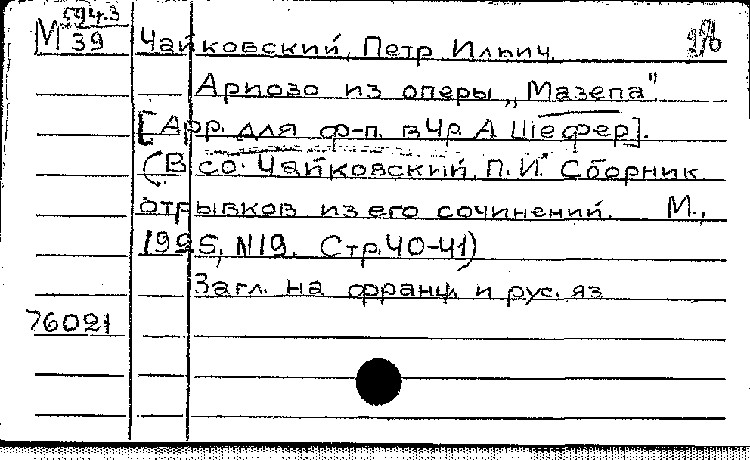 М 594.3
39
Чайковский, Петр Ильич.
Ариозо из оперы „Мазепа"
[Арр. для ф-п. в 4 р. А Шефер].
(В со: Чайковский, П.И. Сборник
отрывков из его сочинений. М.,
1925, N19. Стр. 40-41)
Загл. на франц. и рус. яз
76021